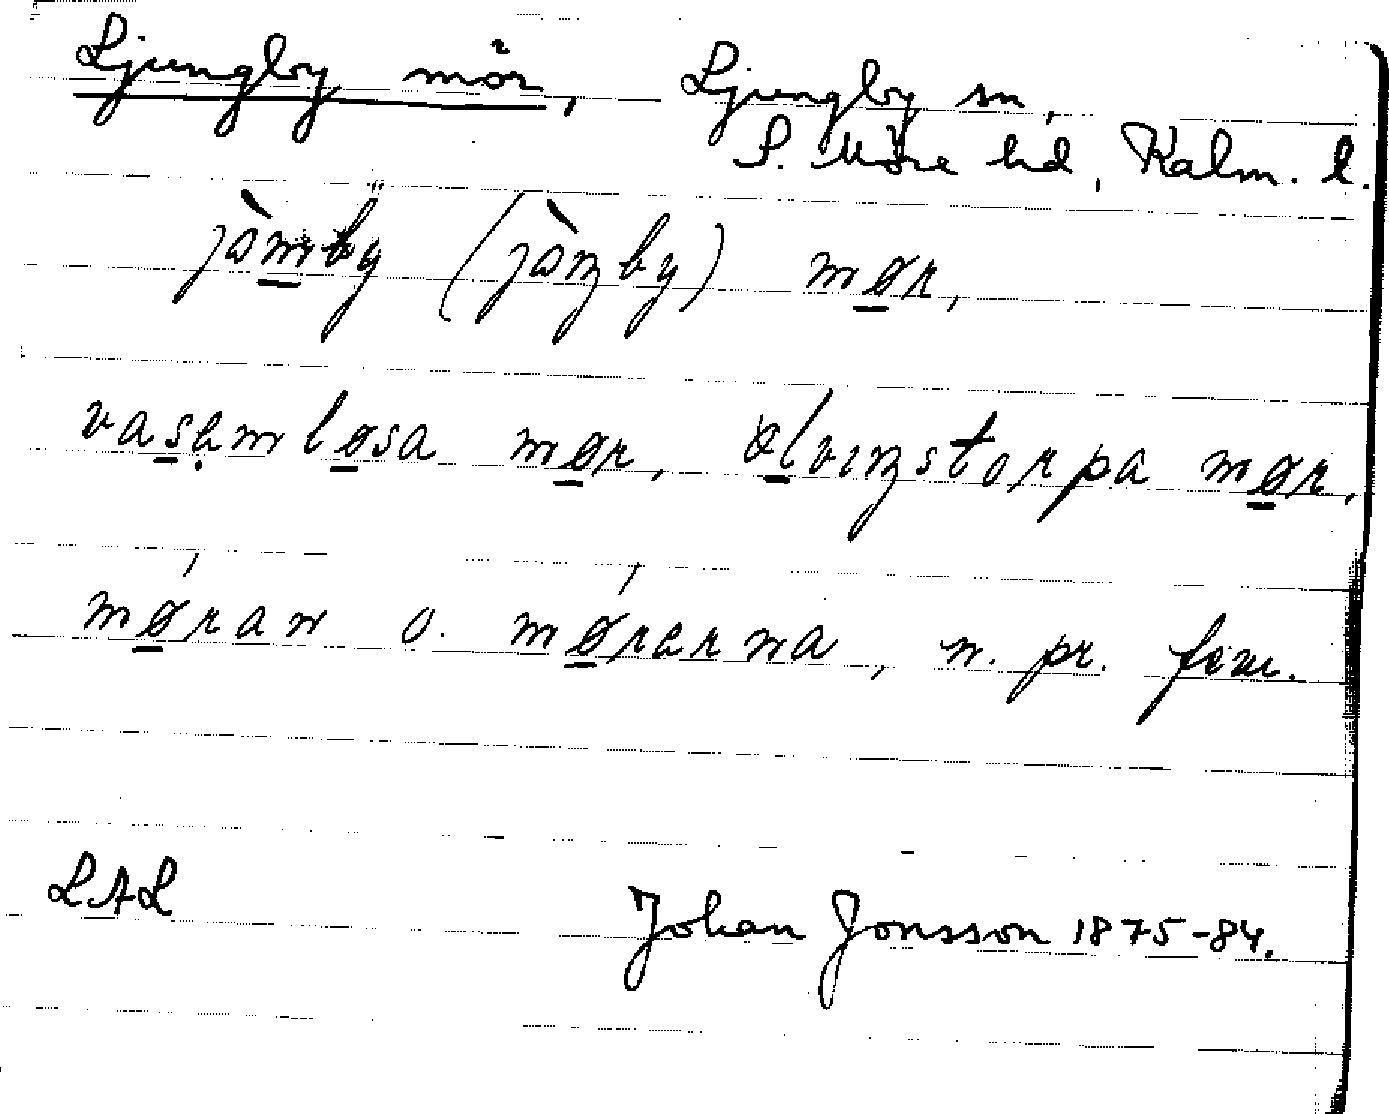 Ljungby mör, Ljungby sn,
S. Möre hd, Kalm. l.
jò̀mby (jò̀ŋby) mør,
vasamløsa mør, ølvıŋstorpa mør,
mǿran o. mǿrerna, n. pr. fem.
LAL Johan Jonsson 1875-84.